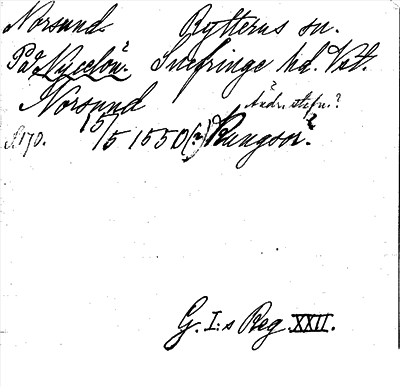 Norsund. Rytterns sn.
På Nyeelön. Snefringe hd. Vstl.
Norsund Ändr. stafn.?
S. 170. 15/5 1550 (?) Kungsör.
G. I:s Reg XXII.